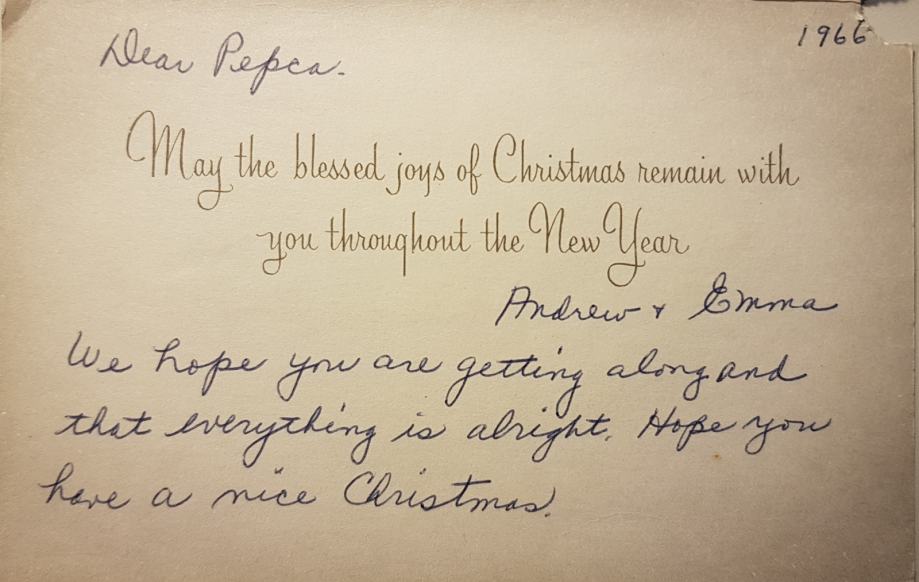 1966
Dear Pepca.
May the blessed joys of Christmas remain with
you throughout the New Year
Andrew + Emma
We hope you are getting along and
that everything is alright. Hope you
have a nice Christmas.